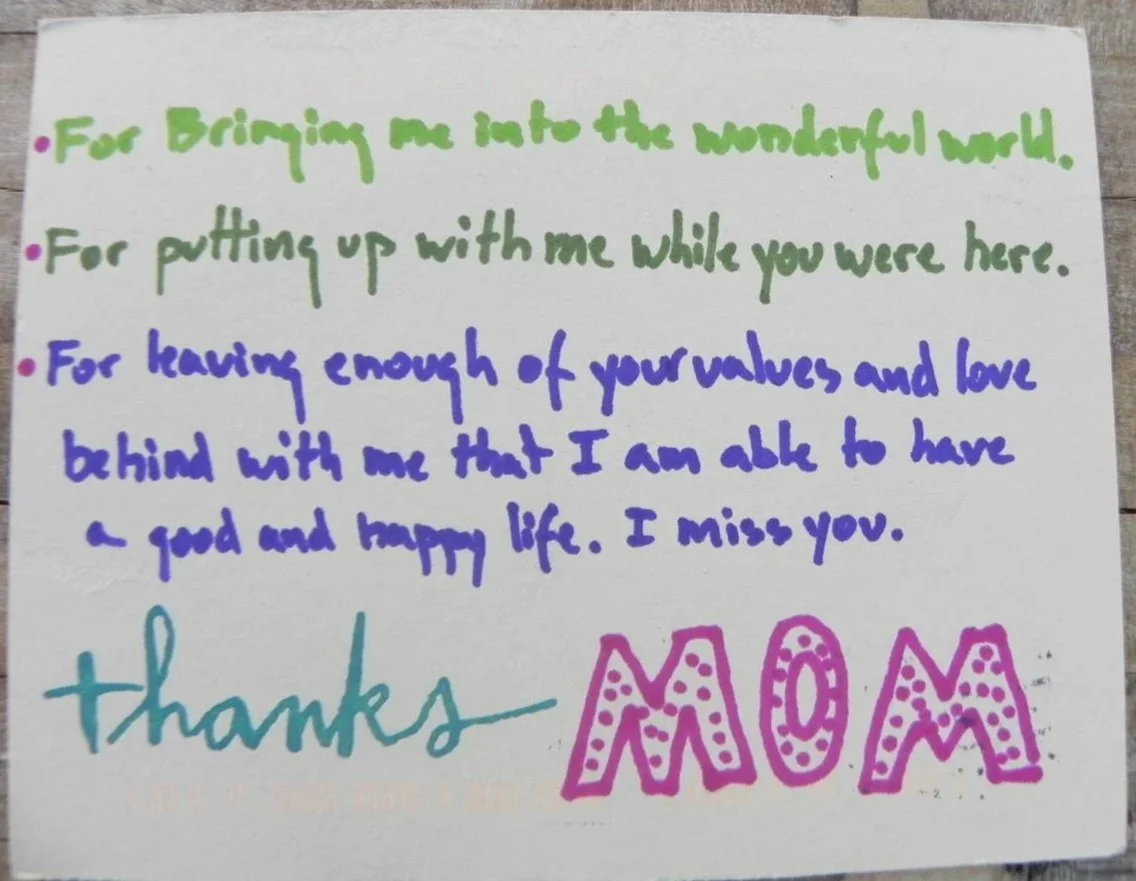 • For Bringing me into the wonderful world.
• For putting up with me while you were here.
• For leaving enough of your values and love
behind with me that I am able to have
a good and happy life. I miss you.
thanks MOM